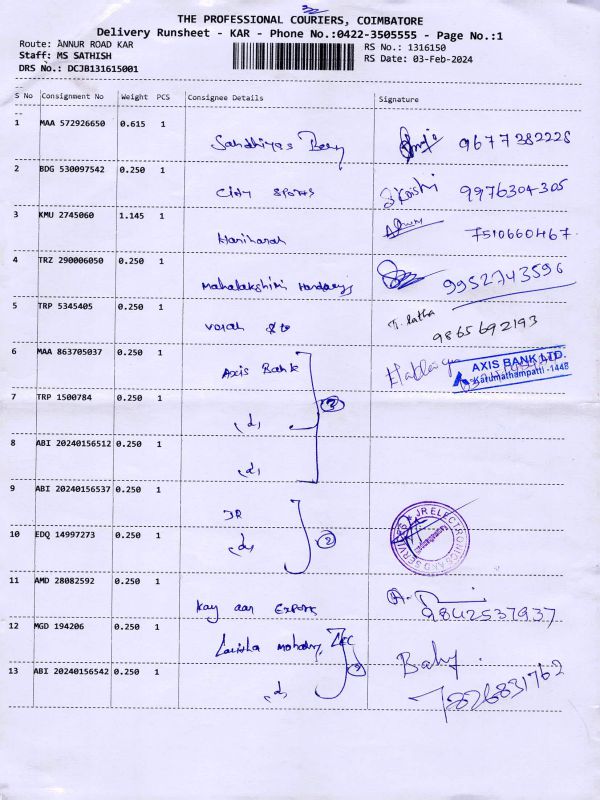 THE PROFESSIONAL COURIERS, COIMBATORE
Delivery Runsheet - KAR - Phone No.:0422-3505555 - Page No.:1
Route: ANNUR ROAD KAR
RS No.: 1316150
Staff: MS SATHISH
RS Date: 03-Feb-2024
DRS No.: DCJB131615001
S No Consignment No Weight PCS Consignee Details Signature
1 MAA 572926650 0.615 1 9677382228
2 BDG 530097542 0.250 1 City sports 9976304305
3 KMU 2745060 1.145 1 Hariharan 7510660467
4 TRZ 290006050 0.250 1 Mahalakshmi 9952743596
5 TRP 5345405 0.250 1 T. Latha
9865692193
6 MAA 863705037 0.250 1 Axis Bank AXIS BANK LTD.
Karumathampatti -1448
7 TRP 1500784 0.250 1 (d) 3
8 ABI 20240156512 0.250 1 (d)
9 ABI 20240156537 0.250 1 JR
JR ELECTRONICS AND SERVICES
10 EDQ 14997273 0.250 1 (d) 2
11 AMD 28082592 0.250 1 Kay aar Exports 9842537937
12 MGD 194206 0.250 1
13 ABI 20240156542 0.250 1 (d) 7826831762